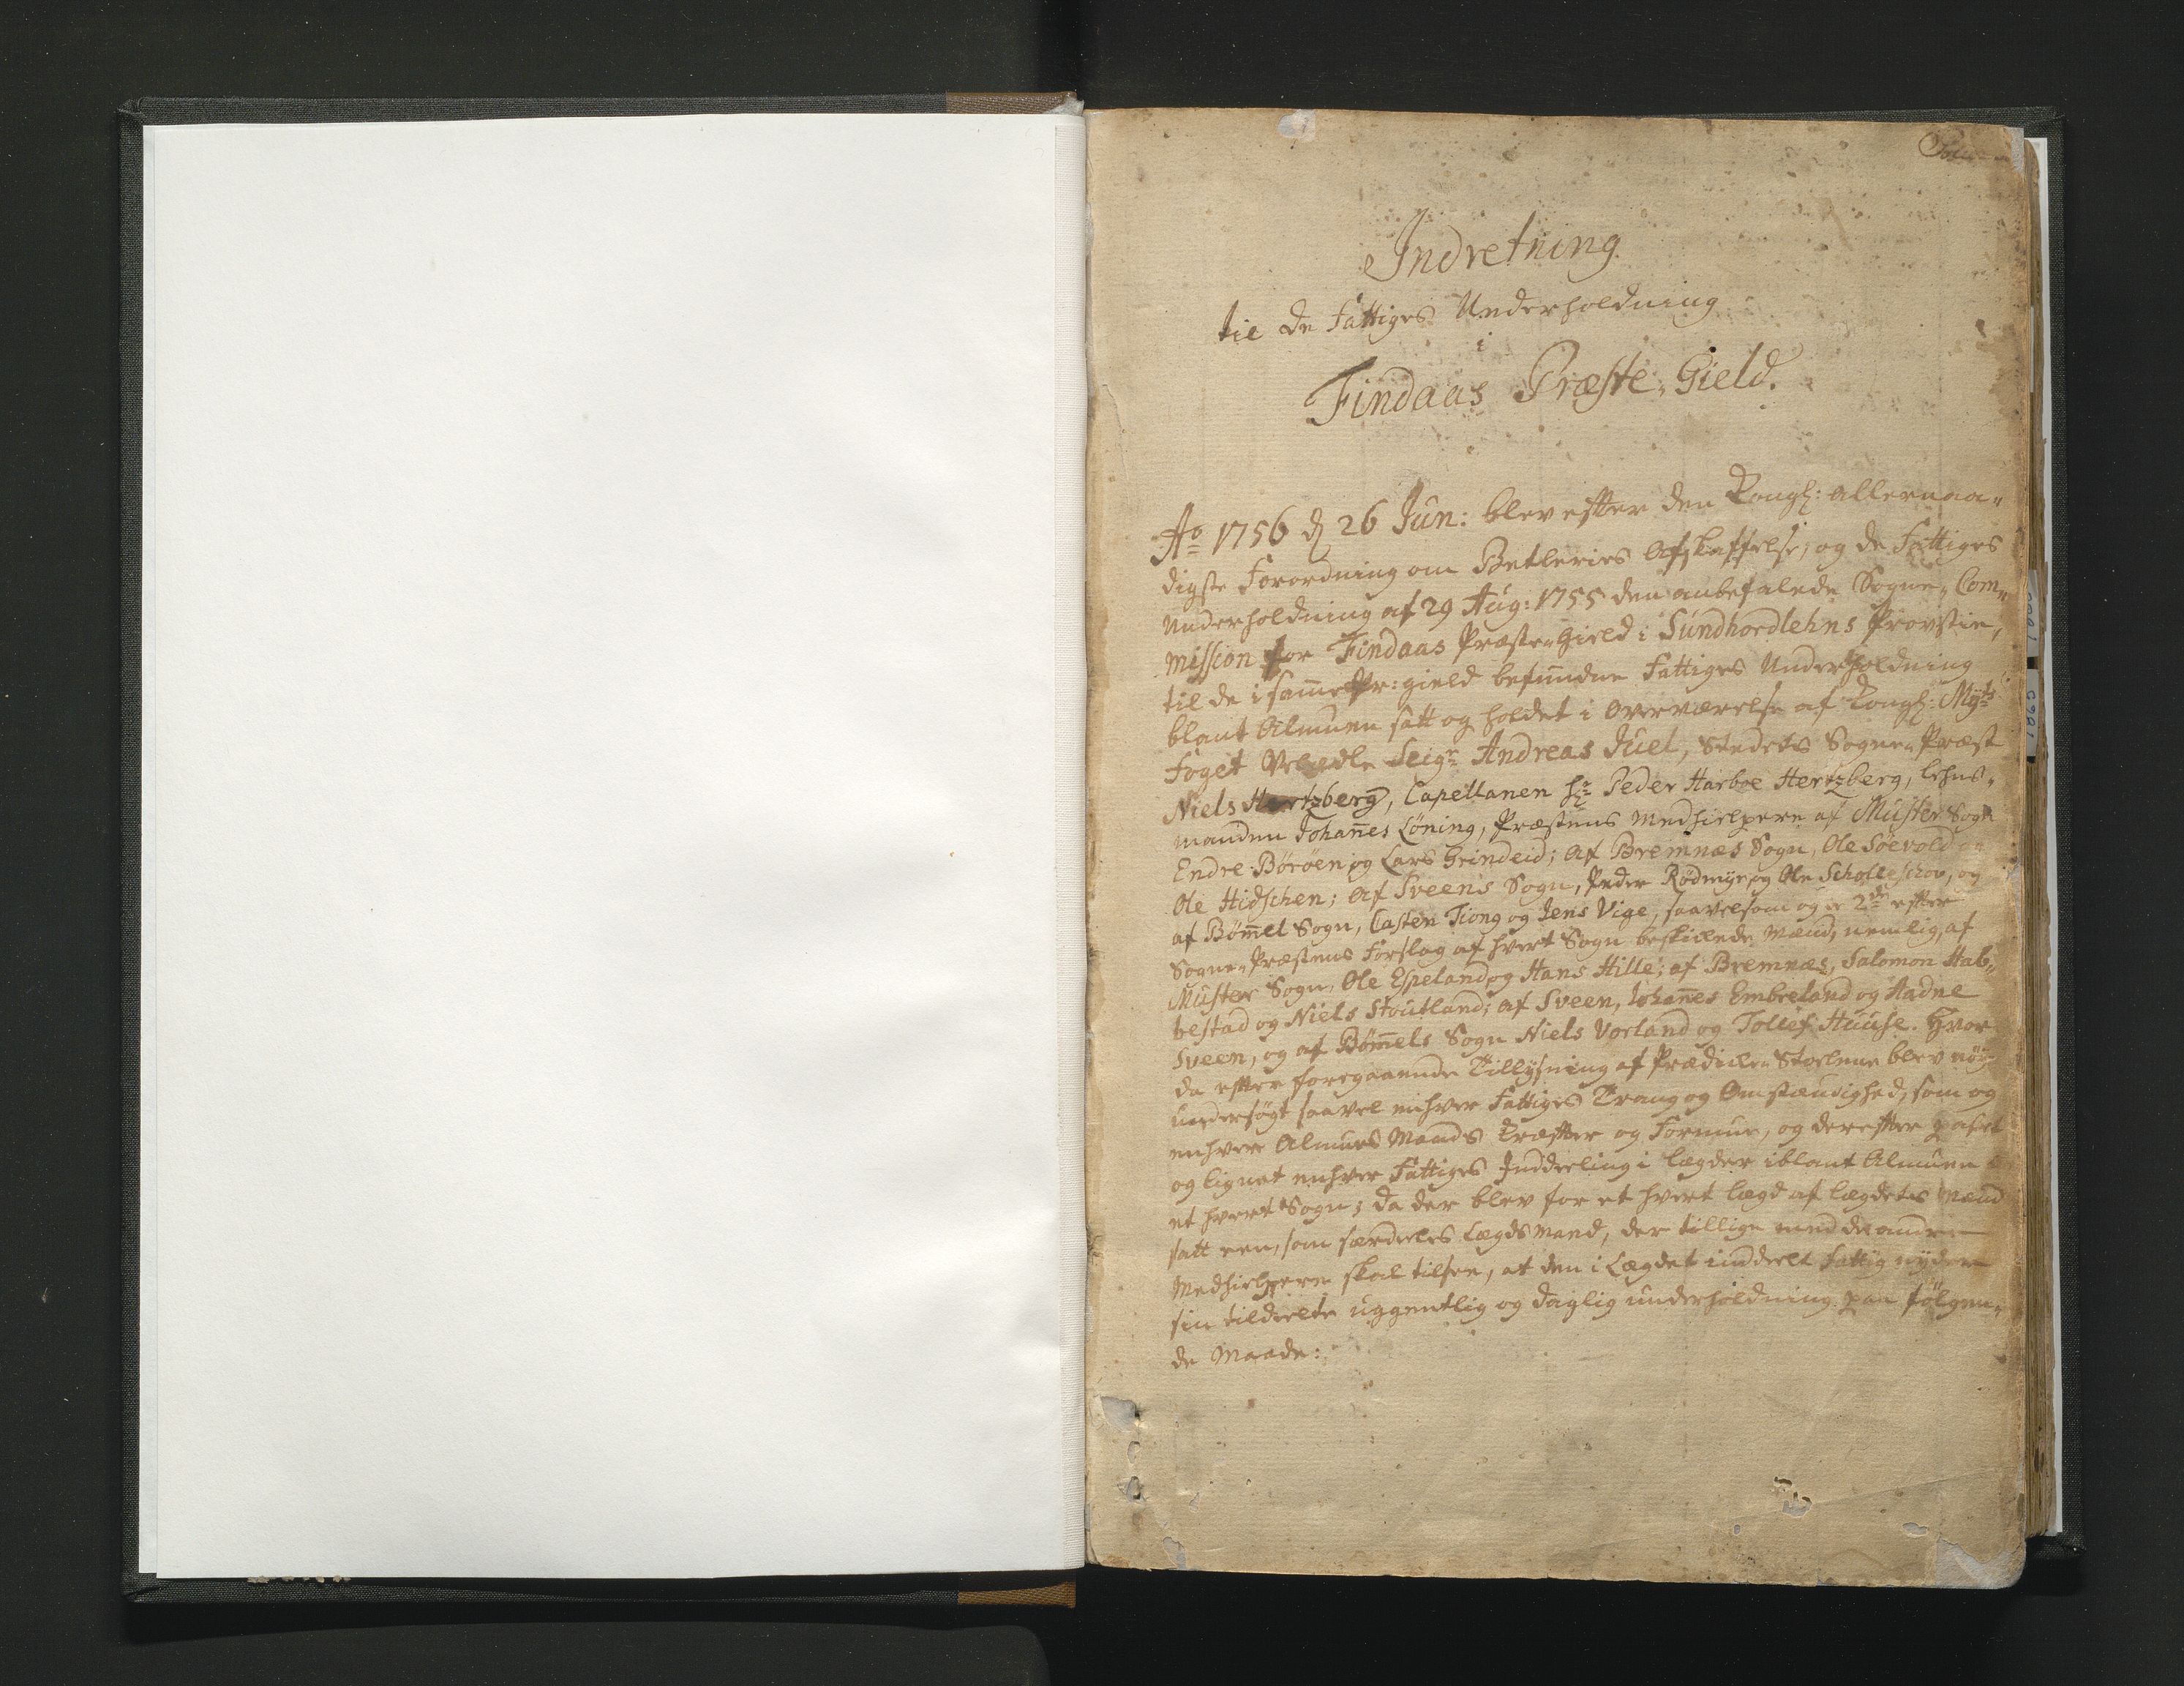 Indretning
til de Fattiges Underholdning
i
Findaas Præste-Gield.
Ao 1756 d 26 Jun: blev efter den Kongl: allernaa-
digste Forordning om Betleries Afskaffelse, og de Fattiges
Underholdning af 29 Aug: 1755 den anbefalede Sogne-Com-
mission for Findaas Præste-Gield i Sundhordlehns Provstie,
til de i samme Pr: gield befundne Fattiges Underholdning
blant Almuen satt og holdet i Overværelse af Kongl: Mayts
Foget Velædle Seigr Andreas Juel, Stedets Sogne-Præst
Niels Hertzberg, Capellanen hr Peder Harboe Hertzberg, Lehns-
manden Johan̄es Löning, Præstens Medhielpere af Muster Sogn
Endre Böröen og Lars Grindeid; af Bremnæs Sogn, Ole Söevold
Ole Hidschen; af Sveens Sogn, Peder Rødmyr og Ole Scholleschov, og
af Böm̄el Sogn, Casten Tiong og Jens Vige, saavelsom og de 2de efter
Sogne-Præstens Forslag af hvert Sogn beskikede Mænd, nemlig, af
Muster Sogn, Ole Espeland og Hans Hille; af Bremnæs, Salomon Hab-
bestad og Niels Stoutland; af Sveen, Johan̄es Embreland og Aadne
Sveen, og af Böm̄els Sogn Niels Vorland og Tollef Huuse. Hvor
da efter foregaaende Tillysning af Prædike-Stoelene blev nöÿe
undersögt saavel enhver Fattiges Trang og Omstændighed, som og
enhver Almues Mands Kræfter og Formue, og derefter
og lignet enhver Fattiges Inddeeling i Lægder iblant Almuen
et hvert Sogn; da der blev for et hvert Lægd af Lægdets Mænd
satt een, som særdeles Lægdsmand, der tillige med de andre
Medhielpere skal tilsee, at den i Lægdet inddeelt Fattig nyder
sin tildeelte uggentlig og daglig underholdning paa fölgen-
de Maade: